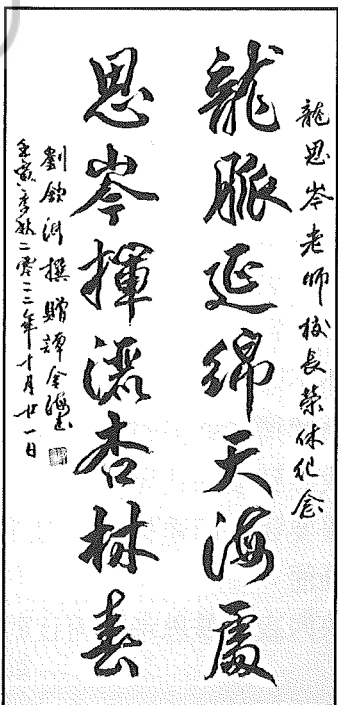 龍思岑老師校長榮休紀念
龍脈延綿天海處
思岑揮灑杏林春
劉欽洲撰贈譚金海書
壬寅季秋二零二二年十月廿一日